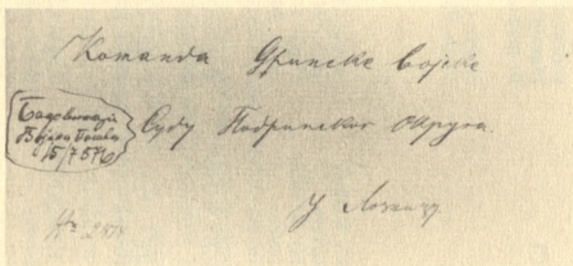 Команда Дринске војске
Суду Подринског округа
у Лозницу
Бадовинци
Војна Пошта
15/7 876
№ 2874